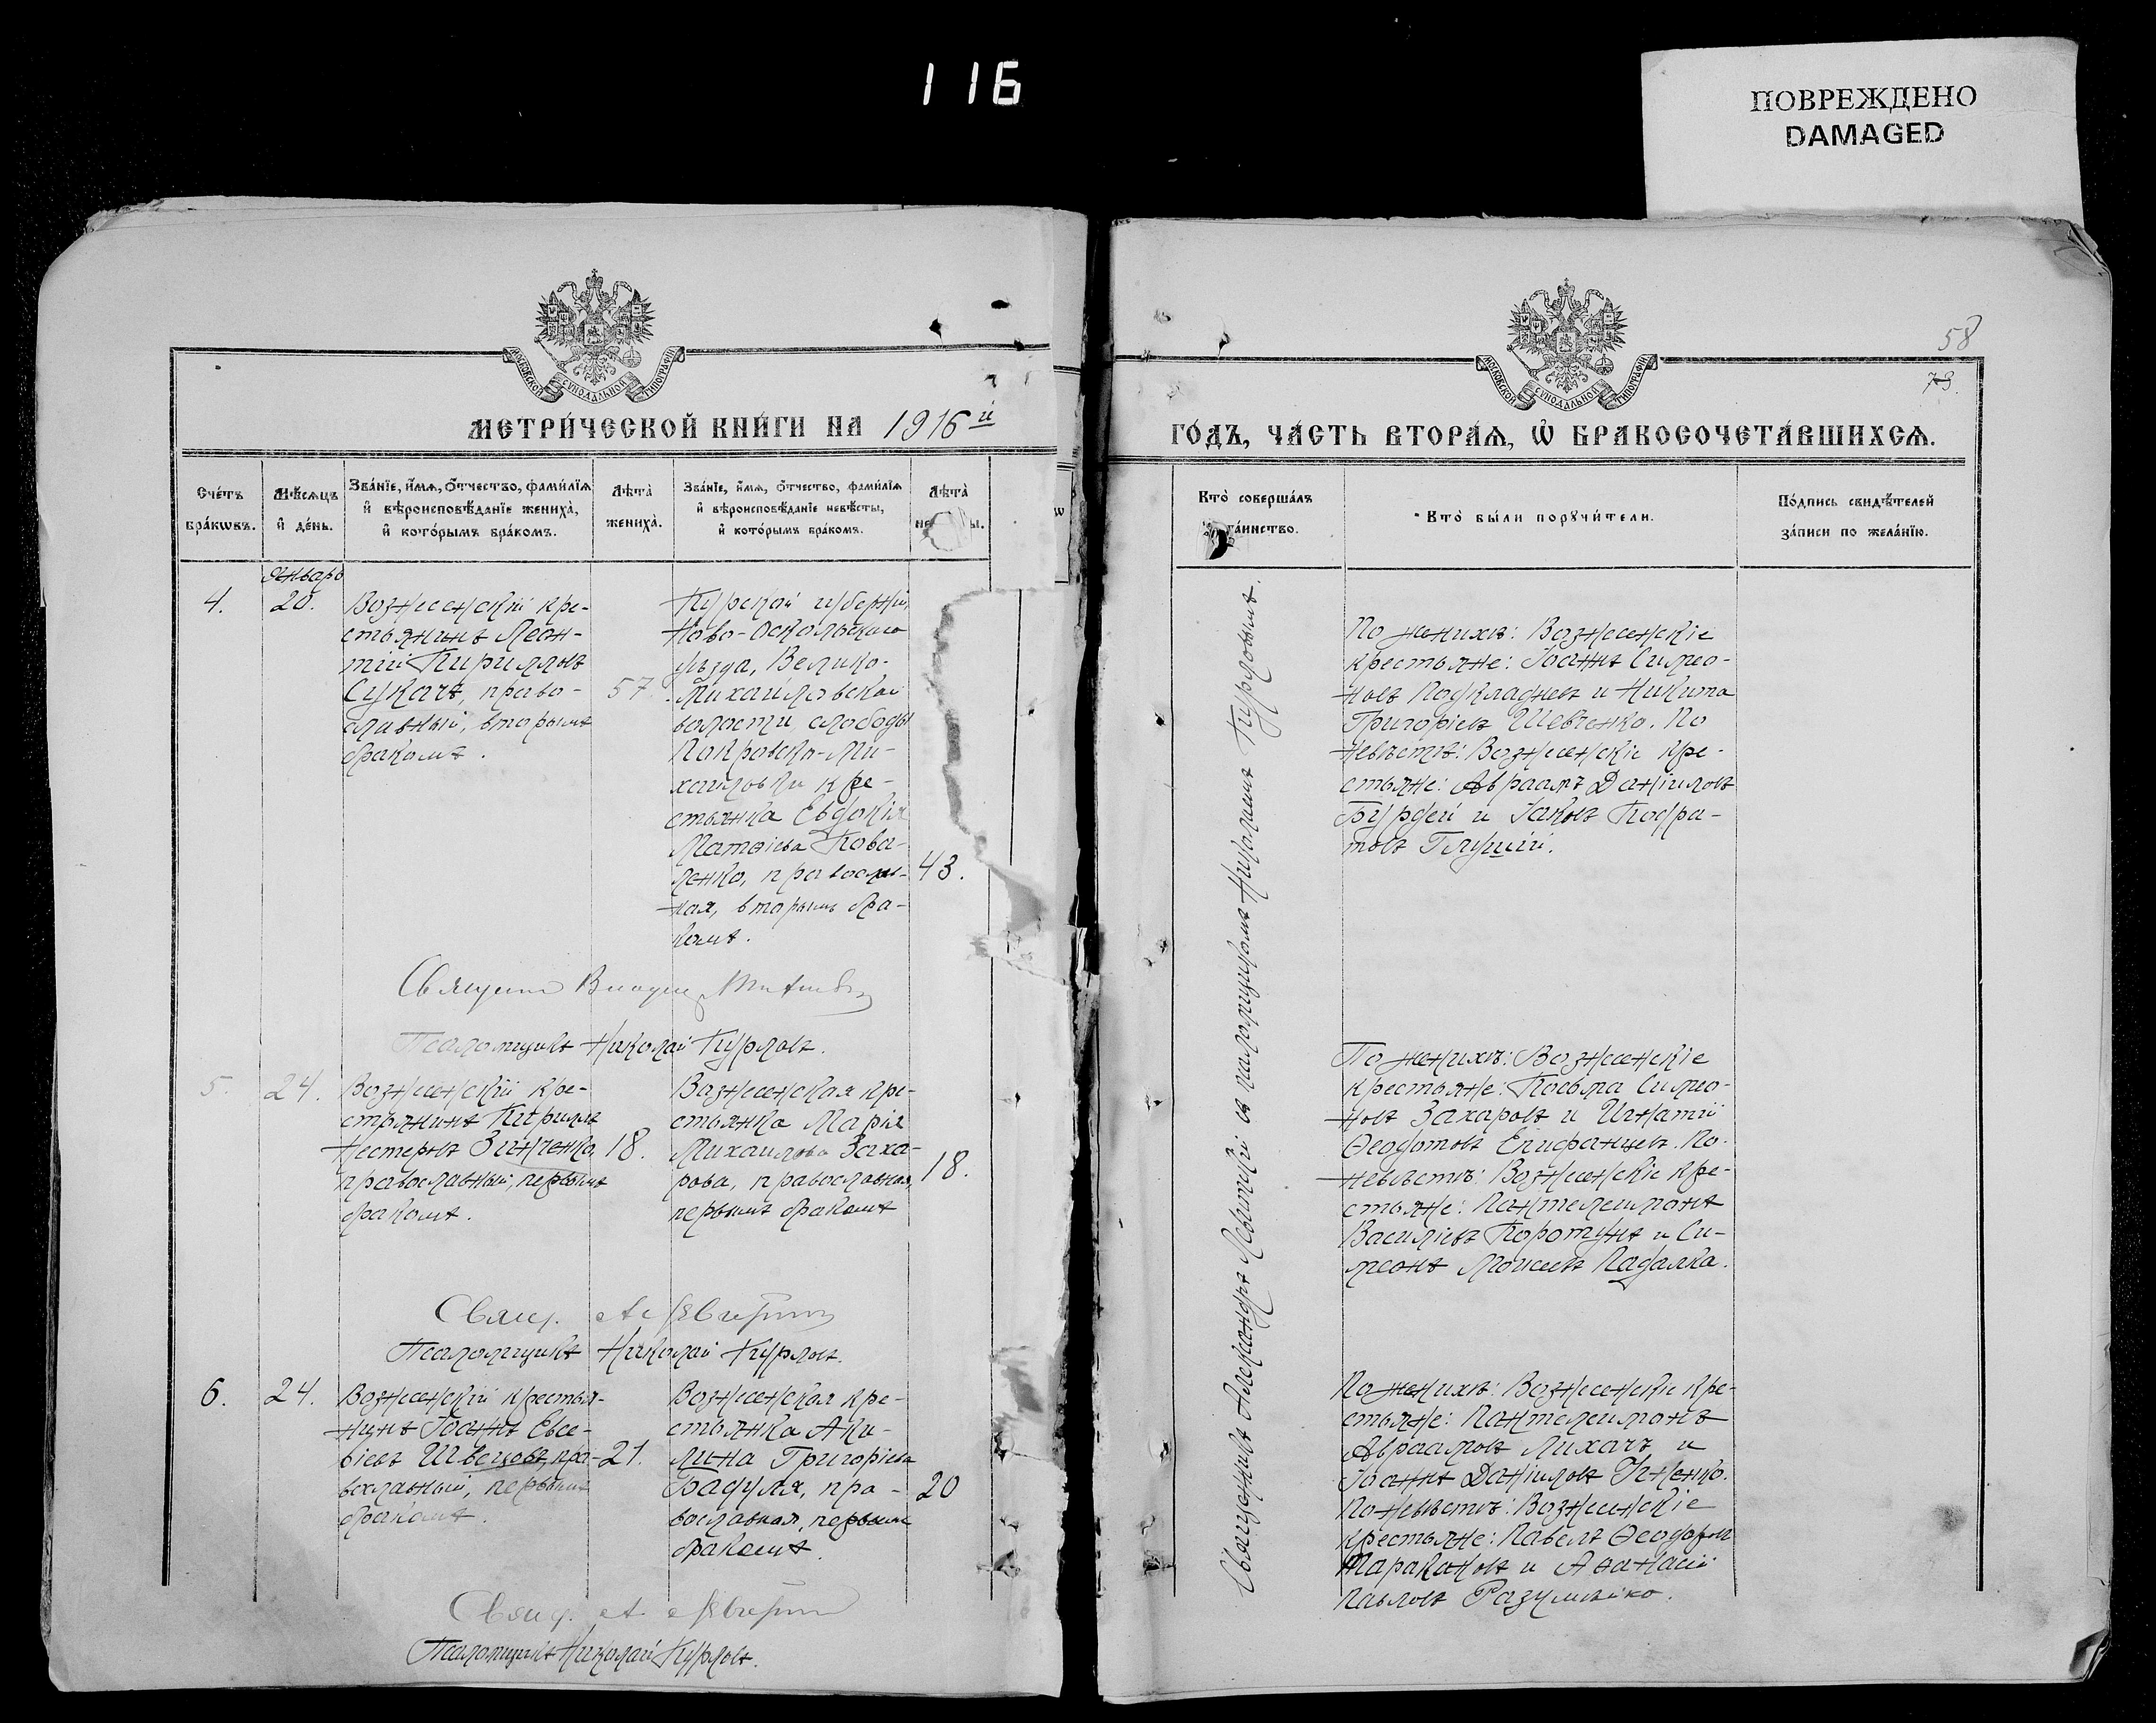 116
ПОВРЕЖДЕНО
DAMAGED
МОСКОВСКОЙ СѴНОДАЛЬНОЙ ТИПОГРАФІИ
МЕТРИ́ЧЕСКОЙ КНИ́ГИ НА 1916й
Сче́тъ бра́кѡвъ.
Мѣ́сѧцъ и҆ де́нь.
Зва́нїе, и҆́мѧ, ѻ҆́тчество, фами́лїѧ
и҆ вѣроисповѣ́данїе жениха̀,
и҆ кото́рымъ бра́комъ.
Лѣта̀ жениха̀.
Зва́нїе, и҆́мѧ, ѻ҆́тчество, фами́лїѧ
и҆ вѣроисповѣ́данїе невѣ́сты,
и҆ кото́рымъ бра́комъ.
Лѣта̀
Январь
4.
20.
Вознесенскій кре-
стьянинъ Леон-
тій Кирилловъ
Сукачъ, право-
славный, вторымъ
бракомъ.
57.
Курской губерніи,
Ново-Оскольскаго
уѣзда, Велико-
Михайловской
волости слободы
Покровско-Ми-
хайловки кре-
стьянка Евдокія
Матѳіева Кова-
ленко, православ-
ная, вторымъ бра-
комъ.
43.
Псаломщикъ Николай Курловъ.
5.
24.
Вознесенскій кре-
стьянинъ Кириллъ
Нестеровъ Зинченко,
православный, первымъ
бракомъ.
18.
Вознесенская кре-
стьянка Марія
Михаилова Заха-
рова, православная,
первымъ бракомъ
18.
Свящ. А. Левитскій
Псаломщикъ Николай Курловъ.
6.
24.
Вознесенскій крестья-
нинъ Іоаннъ Евсе-
віевъ Швецовъ, пра-
вославный, первымъ
бракомъ.
21.
Вознесенская кре-
стьянка Аки-
лина Григоріева
Бадуля, пра-
вославная, первымъ
бракомъ.
20
Свящ. А. Левитскій
Псаломщикъ Николай Курловъ.
58
73.
МОСКОВСКОЙ СѴНОДАЛЬНОЙ ТИПОГРАФІИ
ГО́ДЪ, ЧА́СТЬ ВТОРА́Ѧ, Ѽ БРАКОСОЧЕТА́ВШИХСѦ.
Кто̀ соверша́лъ
та́инство.
Кто̀ бы́ли порꙋчи́тели.
По́дпись свидѣ́телей
за́писи по жела́нїю.
Священникъ Александръ Левитскій съ псаломщикомъ Николаемъ Курловымъ.
По женихѣ: Вознесенскіе
крестьяне: Іоаннъ Симео-
новъ Подкладневъ и Никита
Григоріевъ Шевченко. По
невѣстѣ: Вознесенскіе кре-
стьяне: Авраамъ Даніиловъ
Бурдей и Іаковъ Кодра-
товъ Глущій.
По женихѣ: Вознесенскіе
крестьяне: Косьма Симео-
новъ Захаровъ и Игнатій
Ѳеодотовъ Епифанцевъ. По
невѣстѣ: Вознесенскіе кре-
стьяне: Пантелеимонъ
Василіевъ Коротунъ и Си-
меонъ Моисеевъ Падалка.
По женихѣ: Вознесенскіе кре-
стьяне: Пантелеимонъ
Авраамовъ Лихачъ и
Іоаннъ Даніиловъ
По невѣстѣ: Вознесенскіе
крестьяне: Павелъ Ѳеодоровъ
Таракановъ и Аѳанасій
Павловъ Разумейко.